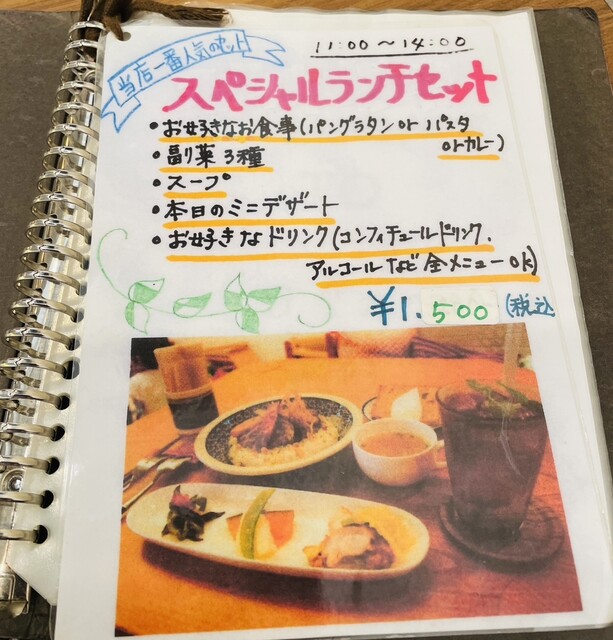 当店一番人気のセット
11:00～14:00
スペシャルランチセット
・お好きなお食事(パングラタン or パスタ
orカレー)
・副菜3種
・スープ
・本日のミニデザート
・お好きなドリンク(コンフィチュールドリンク.
アルコールなど全メニューOK)
¥1.500(税込